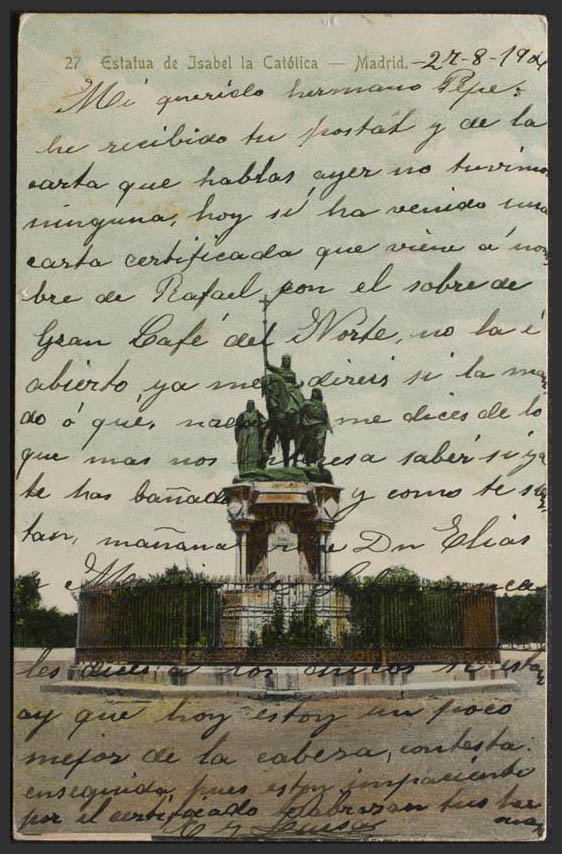 27 Estatua de Isabel la Católica — Madrid. -27-8-1904
Mi querido hermano Pepe:
he recibido tu postal y de la
carta que hablas ayer no tuvimos
ninguna, hoy sí ha venido una
carta certificada que viene á nom-
bre de Rafael con el sobre de
Gran Café del Norte, no la é
abierto, ya me direis si la man-
do ó qué, me dices de lo
que mas nos interesa saber si ya
te has bañado y como te sien-
tan, mañana Dn Elias
les dices a los chicos si están
ay que hoy estoy un poco
mejor de la cabeza, contesta
enseguida pues estoy impaciente
por el certificado te abrazan tus her
manos